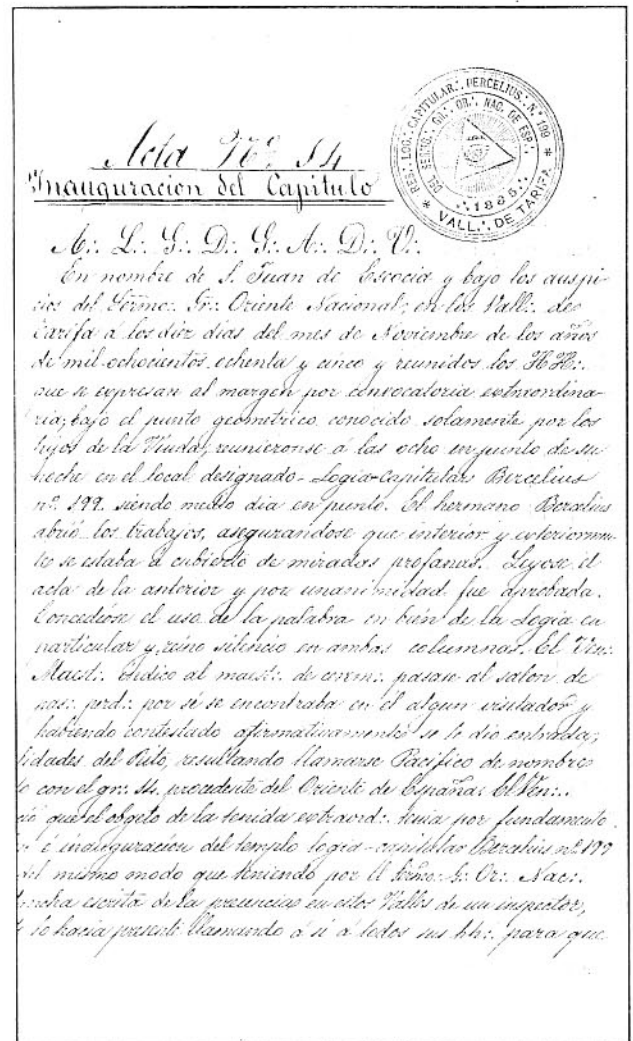 Acta Nº 14
Inauguracion del Capitulo
RES.·. LOG.·. CAPITULAR.·. BERCELIUS.·. N.º 199 * VALL.·. DE TARIFA *
DEL SERMO.·. GR.·. OR.·. NAC. DE ESP.·.
.·.1885.·.
A.·. L.·. G.·. D.·. G.·. A.·. D.·. U.·.
En nombre de S. Juan de Escocia y bajo los auspi-
cios del Sermo.·. Gr.·. Oriente Nacional, en los Vall.·. de
Tarifa á los diez dias del mes de Noviembre de los años
de mil ochocientos ochenta y cinco y reunidos los HH.·.
que se expresan al margen por convocatoria extraordina-
ria, bajo el punto geometrico conocido solamente por los
hijos de la Viuda, reunieronse á las ocho en punto de su
noche en el local designado - Logia-Capitular Bercelius
nº 199. siendo medio dia en punto. El hermano Berzelius
abrió los trabajos, asegurandose que interior y exteriormen-
te se estaba á cubierto de miradas profanas. Leyose el
acta de la anterior y por unanimidad fue aprobada.
Concediose el uso de la palabra en bien de la Logia en
particular y reino silencio en ambas columnas. El Ven.·.
Maest.·. indico al maest.·. de cerem.·. pasase al salon de
pas.·. perd.·. por si se encontraba en él algun visitador y
habiendo contestado afirmativamente se le dio entrada,
lidades del Rito, resultando llamarse Pacifico de nombre
con el gr.·. procedente del Oriente de España. El Ven.·.
que el objeto de la tenida extraord.·. tenia por fundamento
é inauguracion del templo logia-capitular Berzelius nº 199
del mismo modo que teniendo por el Sermo.·. G.·. Or.·. Nac.·.
plancha escrita de la presencia en estos Valls de un inspector,
lo hacia presente llamando á sí á todos sus hh.·. para que